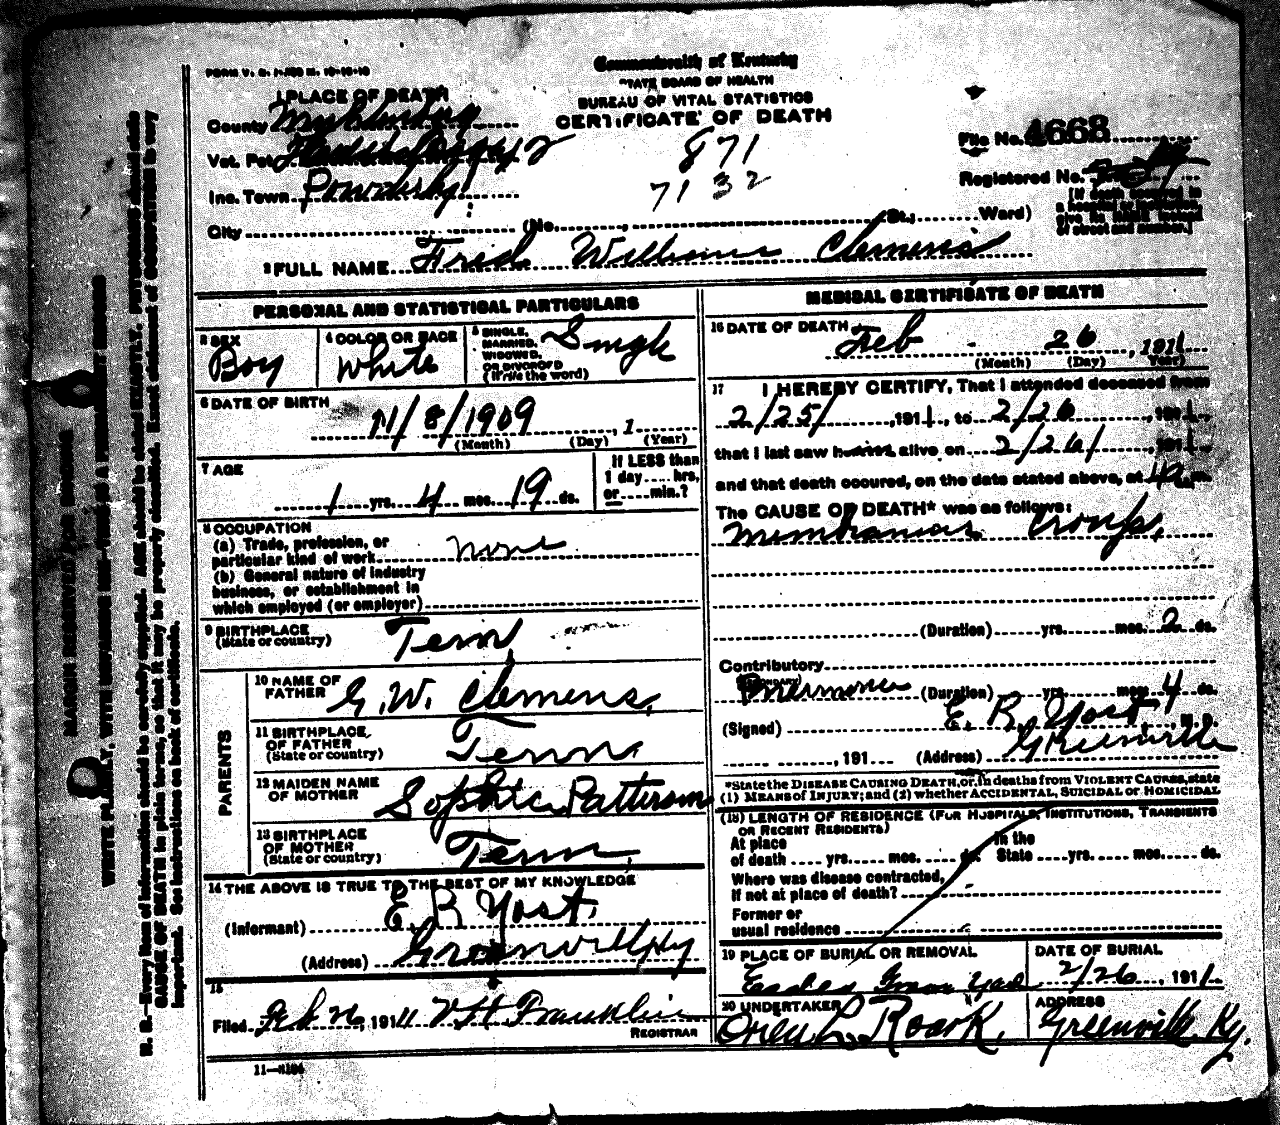 FORM V. S.
Commonwealth of Kentucky
STATE BOARD OF HEALTH
BUREAU OF VITAL STATISTICS
CERTIFICATE OF DEATH
1 PLACE OF DEATH
County Muhlenberg
Vot. Pct. 2
Inc. Town Powderly
City (No. , St., Ward)
871
7132
File No. 4668
Registered No.
[If death occurred in
a hospital or institution,
give its NAME instead
of street and number.]
2 FULL NAME Fred Williams Clemens
PERSONAL AND STATISTICAL PARTICULARS
3 SEX
Boy
4 COLOR OR RACE
White
5 SINGLE,
MARRIED,
WIDOWED,
OR DIVORCED
(Write the word)
Single
6 DATE OF BIRTH
11/8/1909 , 1
(Month) (Day) (Year)
7 AGE
1 yrs. 4 mos. 19 ds.
If LESS than
1 day .... hrs.
or .... min.?
8 OCCUPATION
(a) Trade, profession, or
particular kind of work none
(b) General nature of industry
business, or establishment in
which employed (or employer)
9 BIRTHPLACE
(State or country)
Tenn,
PARENTS
10 NAME OF
FATHER G. W. Clemens,
11 BIRTHPLACE
OF FATHER
(State or country)
Tenn
12 MAIDEN NAME
OF MOTHER Sophie Patterson
13 BIRTHPLACE
OF MOTHER
(State or country)
Tenn,
14 THE ABOVE IS TRUE TO THE BEST OF MY KNOWLEDGE
(Informant) E R Yost,
(Address) Greenville, Ky
15
Filed Feb 26, 1911 V H Franklin
REGISTRAR
11-
MEDICAL CERTIFICATE OF DEATH
16 DATE OF DEATH
Feb 26 , 1911
(Month) (Day) Year)
17 I HEREBY CERTIFY, That I attended deceased from
2/25/ , 1911, to 2/26 , 1911,
that I last saw alive on 2/26/ , 1911,
and that death occured, on the date stated above, at m.
The CAUSE OF DEATH* was as follows:
Membranous Croup,
(Duration) yrs. mos. 2 ds.
Contributory
(SECONDARY)
Pneumonia (Duration) yrs. mos. 4 ds.
(Signed) E. R. Yost, M. D.
, 191 (Address) Greenville
*State the DISEASE CAUSING DEATH, or, in deaths from VIOLENT CAUSES, state
(1) MEANS OF INJURY; and (2) whether ACCIDENTAL, SUICIDAL or HOMICIDAL
(18) LENGTH OF RESIDENCE (FOR HOSPITALS, INSTITUTIONS, TRANSIENTS
OR RECENT RESIDENTS)
At place
of death .... yrs. .... mos. .... ds.
In the
State .... yrs. .... mos. .... ds.
Where was disease contracted,
if not at place of death?
Former or
usual residence
19 PLACE OF BURIAL OR REMOVAL
Eades Grave Yard
DATE OF BURIAL
2/26 , 1911
20 UNDERTAKER
Orien L. Roark.
ADDRESS
Greenville. Ky.
MARGIN RESERVED FOR BINDING
WRITE PLAINLY, WITH UNFADING INK—THIS IS A PERMANENT RECORD
N. B.—Every item of information should be carefully supplied. AGE should be stated EXACTLY. PHYSICIANS should state
CAUSE OF DEATH in plain terms, so that it may be properly classified. Exact statement of OCCUPATION is very
important. See instructions on back of certificate.